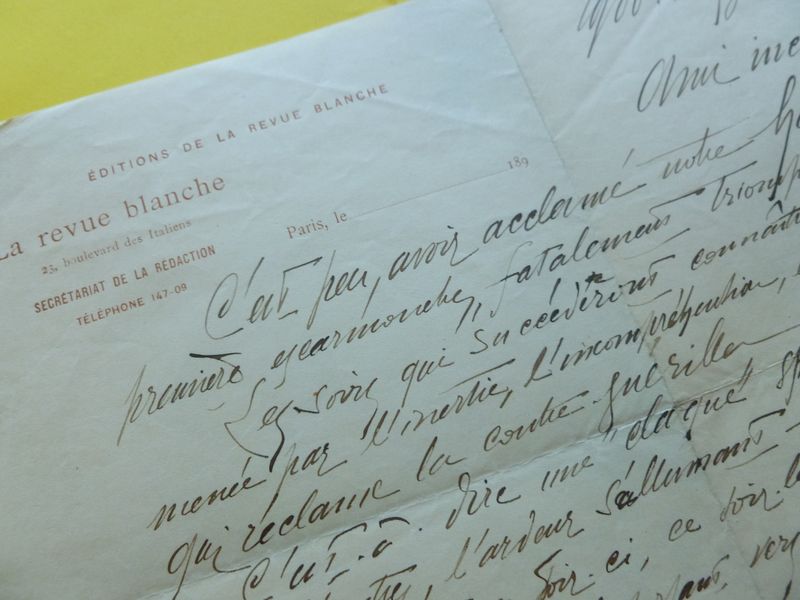 ÉDITIONS DE LA REVUE BLANCHE
La revue blanche
23, boulevard des Italiens
SECRÉTARIAT DE LA RÉDACTION
TÉLÉPHONE 147-09
Paris, le 189
Ami
C'est peu, avoir acclamé notre
première escarmouche, fatalement
Les soirs qui succéderont connaîtr
menée par l'inertie, l'incompréhension,
qui réclame la contre-guérilla
C'est-à-dire une "claque"
l'ardeur s'allumant
soir-ci, ce soir-là